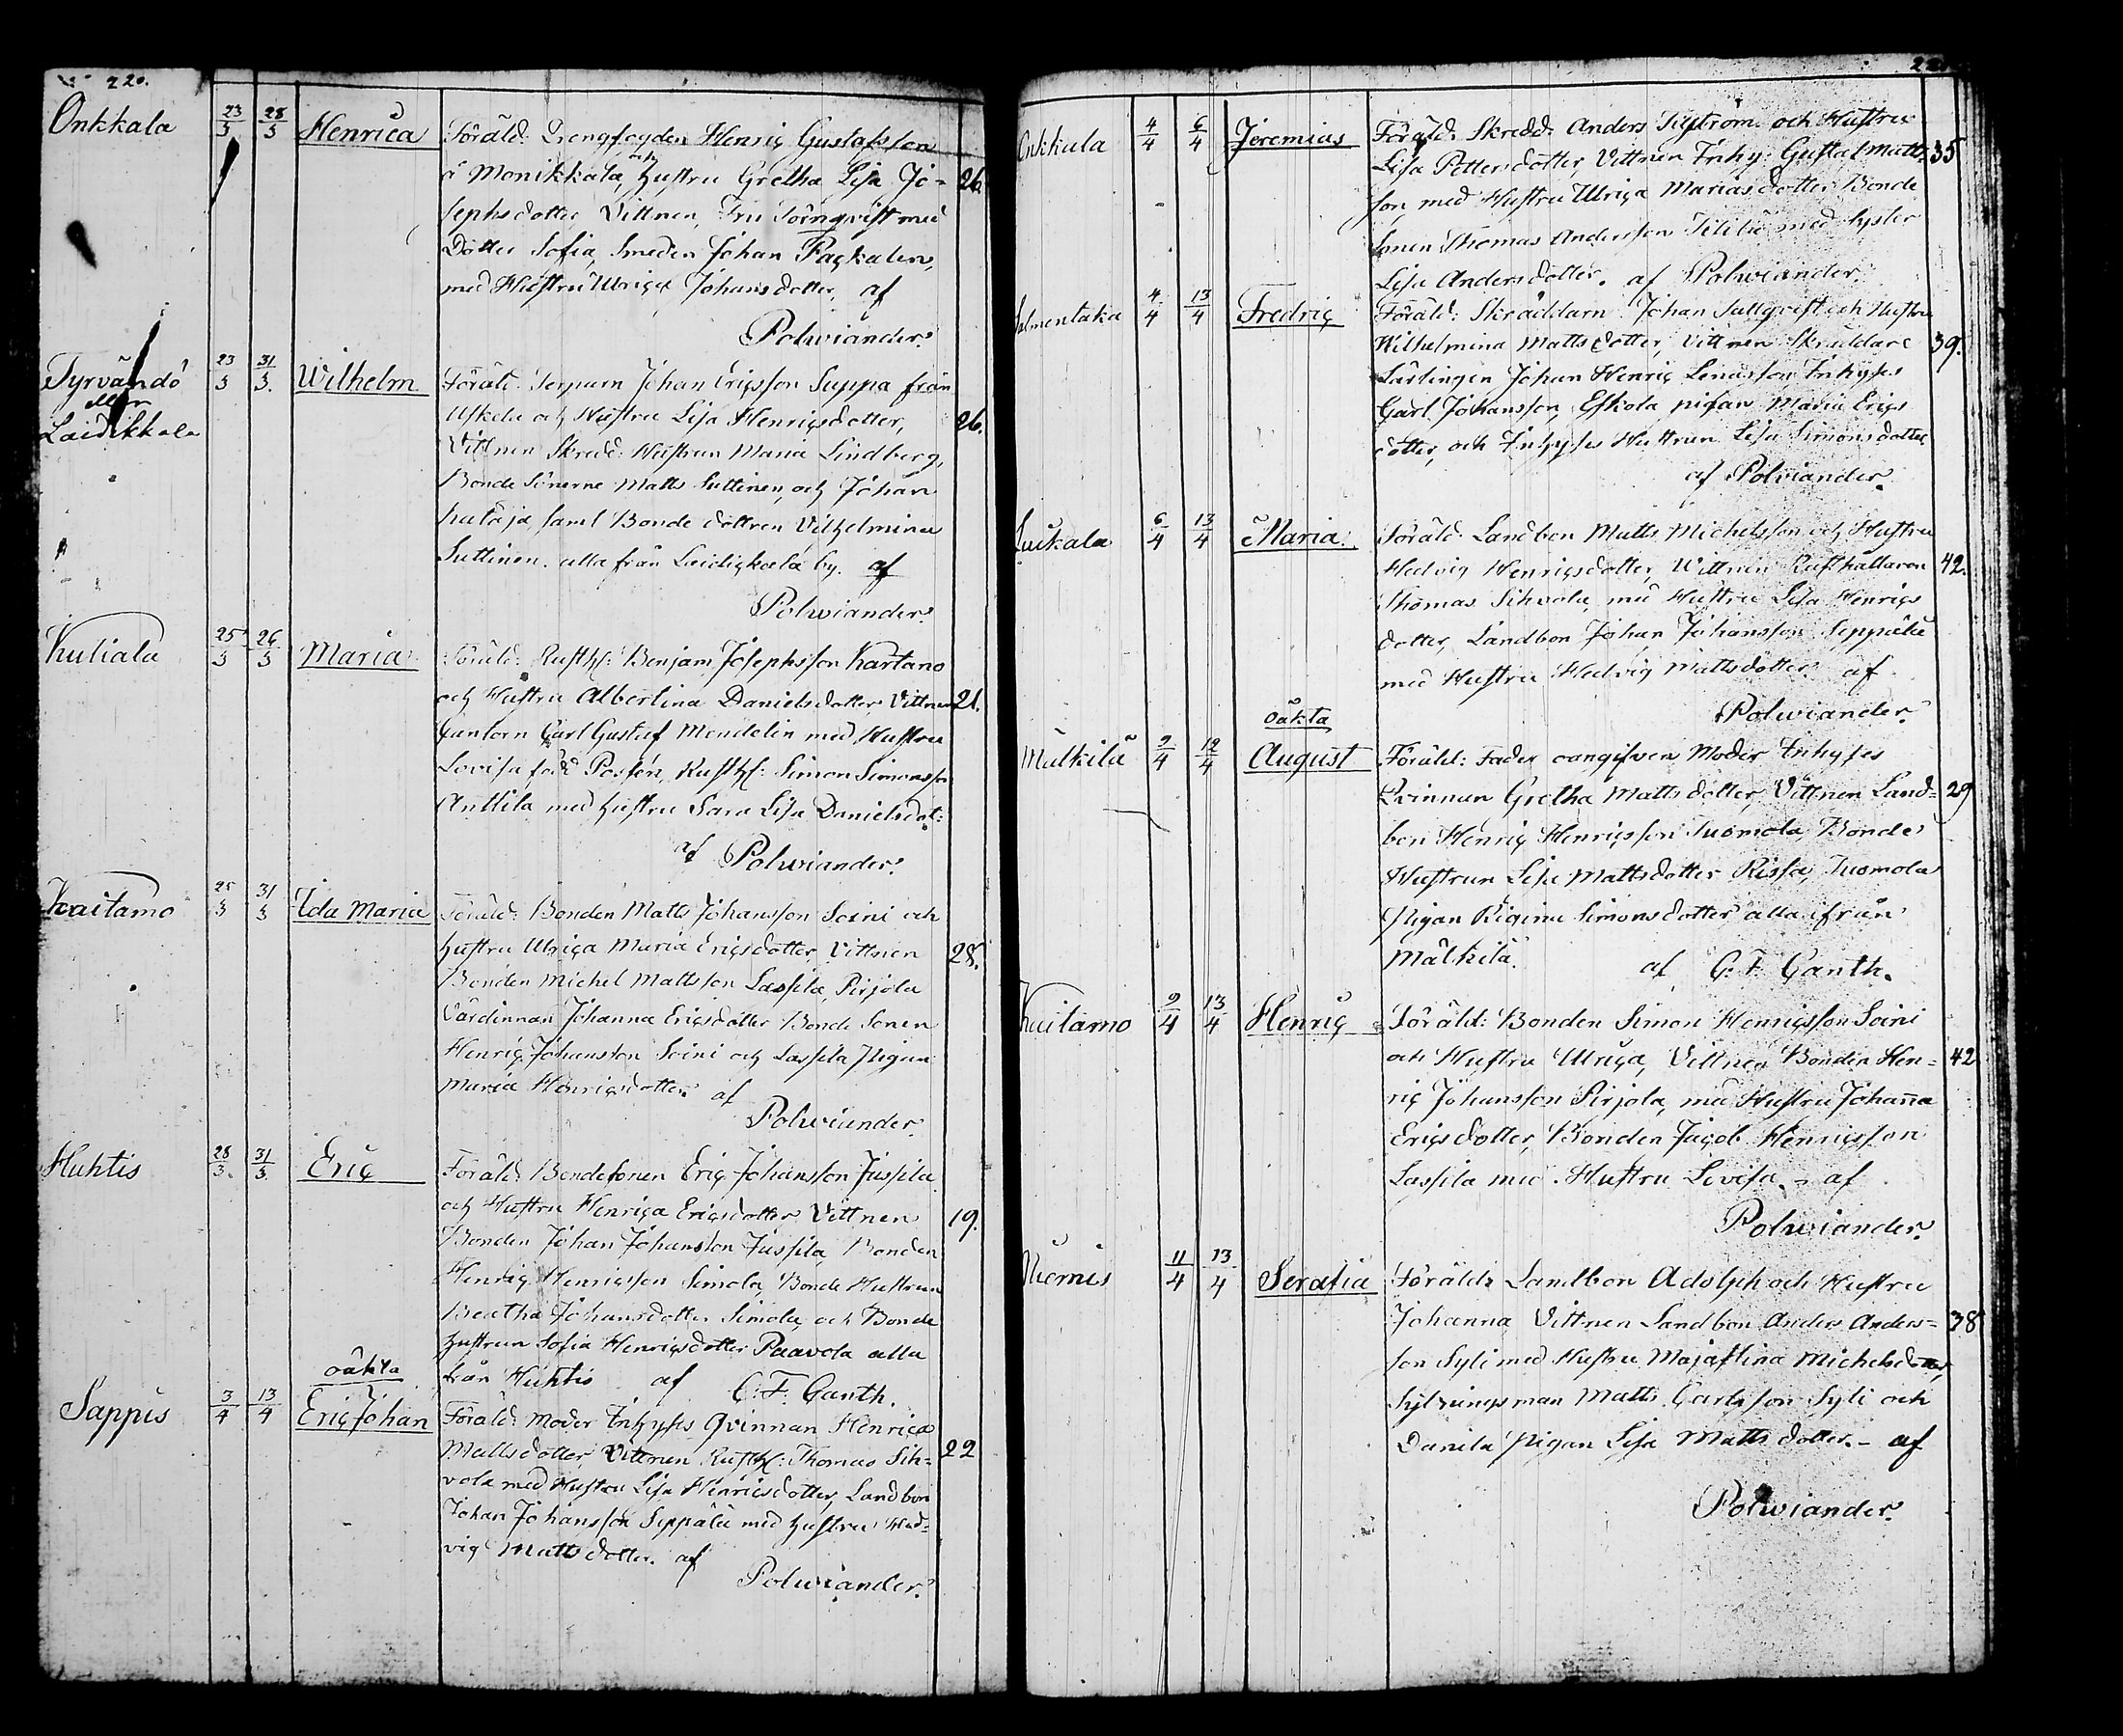 220.
Onkkala 23/3 28/3 Henrica Föräld: Drengfogden Henriç Gustafsson
å Monikkala, och hustru Gretha Lisa Jo- 26.
sephsdotter, Vittnen, Fru Törnqvist med
Dotter Sofia, Smeden Johan Paçkalen,
med Hustru Ulriça Johansdotter, af
Polwiander.
Tyrvändö 23/3 31/3 Wilhelm Föräld: Torparn Johan Ericsson Suppa från
eller
Laidikkala Uskela och Hustru Lisa Henriçsdotter, 26.
Vittnen Skredd: Hustrun Maria Lindberg,
Bonde Sönerne Matts Suttinen, och Johan
Kataja samt Bonde dottren Vilhelmina
Suttinen. alla från Laidiçkala by. af
Polwiander.
Kutiala 25/3 26/3 Maria Föräld: Rusth: Benjam: Josephsson Kartano
och Hustru Albertina Danielsdotter Vittnen 21.
Çantorn Çarl Gustaf Mendelin med Hustru
Lovisa född Posfén, Rusth: Simon Simonsson
Anttila med hustru Sara Lisa Danielsdot:
af Polwiander.
Kaitamo 25/3 31/3 Ida Maria Föräld: Bonden Matts Johansson Soini och
hustru Ulriça Maria Eriçsdotter, Vittnen 28.
Bonden Michel Mattsson Laspila, Pirjola
Värdinnan Johanna Eriçsdotter Bonde Sonen
Henriç Johansson Soini och Laspila Pigan
Maria Henriçsdotter. af
Polwiander.
Huhtis 28/3. 31/3. Eriç Föräld: Bondesonen Eriç Johansson Juspila
och Hustru Henriça Eriçsdotter, Vittnen 19.
Bonden Johan Johansson Juspila, Bonden
Henriç Henriçsson Simola, Bonde Hustrun
Beatha Johansdotter Simola, och Bonde
hustrun Sofia Henriçsdotter Paavola alla
från Huhtis af C: F: Ganth.
oäkta
Sappis 3/4 13/4 Eriç Johan Föräld: Moder Inhyses Qvinnan Henrica
Mattsdotter, Vittnen Rusth: Thomas Sih- 22
vola med Hustru Lisa Henriçsdotter, Landbon
Johan Johansson Seppälä med hustru Hed-
vig Mattsdotter. af
Polwiander.
Onkkala 4/4 6/4 Jeremias Föräld: Skredd: Anders Sigström och Hustru
Lisa Pettersdotter, Vittnen Inhy: Gustaf Matts- 35
son med Hustru Ulriça Mariasdotter, Bonde
Sonen Thomas Andersson Tilibu med Syster
Lisa Andersdotter. af Polwiander.
Salmentaka 4/4 13/4 Fredriç Föräld: Skräddarn Johan Sallqvist och Hustru
Wilhelmina Mattsdotter, Vittnen Skräddare 39.
Lärlingen Johan Henriç Lenasson, Inhyses
Çarl Johansson, Eskola pigan Maria Eriçs
dotter, och Inhyses Hustrun Lisa Simonsdotter
af Polwiander.
Luikala 6/4 13/4 Maria. Föräld: Landbon Matts Michelsson och Hustru
Hedvig Henriçsdotter, Wittnen Rusthållaren 42.
Thomas Sihvola, med Hustru Lisa Henriçs
dotter, Landbon Johan Johansson Seppälä
med Hustru Hedvig Mattsdotter. af
Polwiander.
oäkta
Mälkilä 9/4 12/4 August Föräld: Fader oangifven Moder Inhyses
Qvinnan Gretha Mattsdotter, Vittnen Land= 29
bon Henriç Henriçsson Tuomola, Bonde
Hustrun Lisa Mattsdotter Rissa, Tuomola
Pigan Regina Simonsdotter alla ifrån
Mälkilä. af C: F. Ganth.
Kaitamo 9/4 13/4 Henriç Föräld: Bonden Simon Henriçsson Soini
och Hustru Ulriça, Vittnen Bonden Hen= 42
riç Johansson Pirjola, med Hustru Johanna
Eriçsdotter, Bonden Jaçob Henriçsson
Laspila med Hustru Lovisa. - af
Polwiander.
11/4 13/4 Serafia Föräld: Landbon Adolph och Hustru
Johanna Vittnen Landbon Anders Anders= 38
son Syli med Hustru Majastina Michelsdotter,
Sytningsman Matts Çarlsson Syli och
Danila Pigan Lisa Mattsdotter. - af
Polwiander.